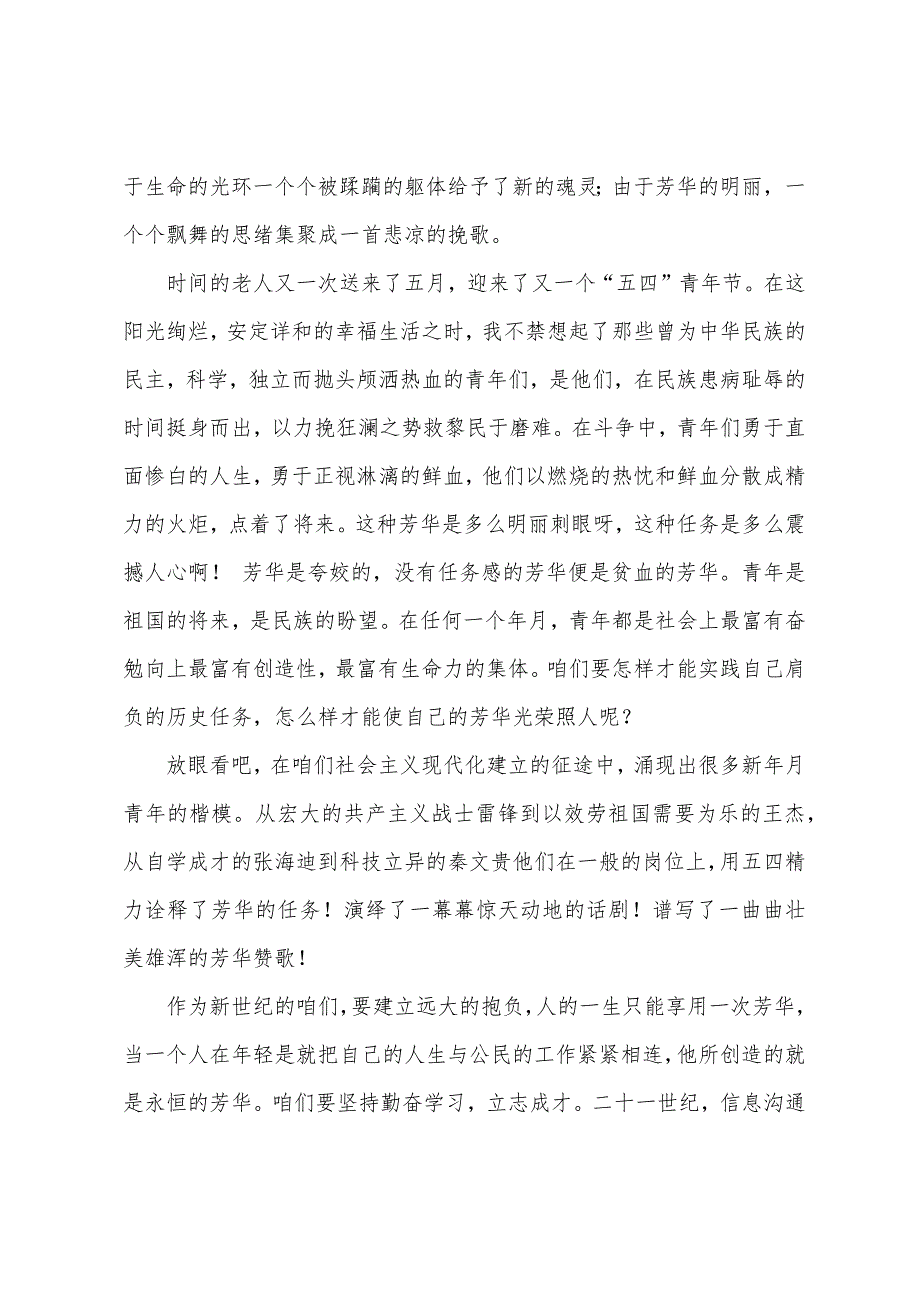 于生命的光环一个个被蹂躏的躯体给予了新的魂灵；由于芳华的明丽，一
个个飘舞的思绪集聚成一首悲凉的挽歌。
时间的老人又一次送来了五月，迎来了又一个“五四”青年节。在这
阳光绚烂，安定详和的幸福生活之时，我不禁想起了那些曾为中华民族的
民主，科学，独立而抛头颅洒热血的青年们，是他们，在民族患病耻辱的
时间挺身而出，以力挽狂澜之势救黎民于磨难。在斗争中，青年们勇于直
面惨白的人生，勇于正视淋漓的鲜血，他们以燃烧的热忱和鲜血分散成精
力的火炬，点着了将来。这种芳华是多么明丽刺眼呀，这种任务是多么震
撼人心啊！ 芳华是夸姣的，没有任务感的芳华便是贫血的芳华。青年是
祖国的将来，是民族的盼望。在任何一个年月，青年都是社会上最富有奋
勉向上最富有创造性，最富有生命力的集体。咱们要怎样才能实践自己肩
负的历史任务，怎么样才能使自己的芳华光荣照人呢？
放眼看吧，在咱们社会主义现代化建立的征途中，涌现出很多新年月
青年的楷模。从宏大的共产主义战士雷锋到以效劳祖国需要为乐的王杰，
从自学成才的张海迪到科技立异的秦文贵他们在一般的岗位上，用五四精
力诠释了芳华的任务！演绎了一幕幕惊天动地的话剧！谱写了一曲曲壮
美雄浑的芳华赞歌！
作为新世纪的咱们，要建立远大的抱负，人的一生只能享用一次芳华，
当一个人在年轻是就把自己的人生与公民的工作紧紧相连，他所创造的就
是永恒的芳华。咱们要坚持勤奋学习，立志成才。二十一世纪，信息沟通